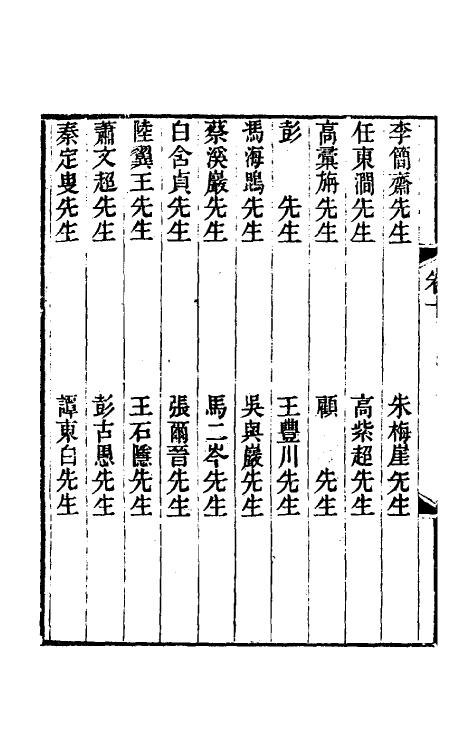 李簡齋先生　朱梅崖先生
任東澗先生　高紫超先生
高彙旃先生　顧　先生
彭　先生　王豐川先生
馮海鵾先生　吳與巖先生
蔡溪巖先生　馬二岑先生
白含貞先生　張爾晉先生
陸翼王先生　王石隱先生
蕭文超先生　彭古愚先生
秦定叟先生　譚東白先生